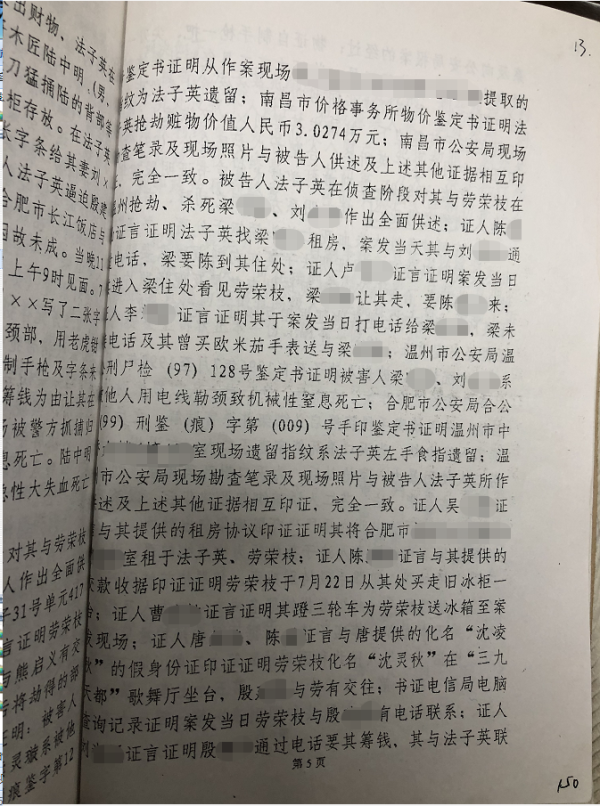 13.
出财物、法子英在
木匠陆中明（男、
刀猛捅陆的背部等
柜存放。在法子英
长字条给其妻刘×
人法子英逼迫殷建
合肥市长江饭店与
因故未成。当晚11
上午9时见面。7
××写了二张字
颈部，用老虎钳
制手枪及字条未
筹钱为由让其在
场被警方抓捕归
息死亡。陆中明
急性大失血死亡
对其与劳荣枝
人作出全面供
子31号单元417
言证明劳荣枝
与熊启义有交
手将劫得的部
证明：被害人
灵璇系被他
痕鉴字第12
鉴定书证明从作案现场 提取的
纹为法子英遗留；南昌市价格事务所物价鉴定书证明法
英抢劫赃物价值人民币3.0274万元；南昌市公安局现场
查笔录及现场照片与被告人供述及上述其他证据相互印
，完全一致。被告人法子英在侦查阶段对其与劳荣枝在
州抢劫、杀死梁 、刘 作出全面供述；证人陈
证言证明法子英找梁 租房，案发当天其与刘 通
电话，梁要陈到其住处；证人卢 证言证明案发当日
进入梁住处看见劳荣枝，梁 让其走，要陈 来；
人李 证言证明其于案发当日打电话给梁 ，梁未
电话及其曾买欧米茄手表送与梁 ；温州市公安局温
公刑尸检（97）128号鉴定书证明被害人梁 、刘 系
他人用电线勒颈致机械性窒息死亡；合肥市公安局合公
（99）刑鉴（痕）字第（009）号手印鉴定书证明温州市中
室现场遗留指纹系法子英左手食指遗留；温
市公安局现场勘查笔录及现场照片与被告人法子英所作
述及上述其他证据相互印证，完全一致。证人吴 证
与其提供的租房协议印证证明其将合肥市
室租于法子英、劳荣枝；证人陈 证言与其提供的
款收据印证证明劳荣枝于7月22日从其处买走旧冰柜一
台；证人曹 证言证明其蹬三轮车为劳荣枝送冰箱至案
发现场；证人唐 、陈 证言与唐提供的化名“沈凌
秋”的假身份证印证证明劳荣枝化名“沈灵秋”在“三九
天都”歌舞厅坐台，殷 与劳有交往；书证电信局电脑
查询记录证明案发当日劳荣枝与殷 有电话联系；证人
刘 证言证明殷 通过电话要其筹钱，其与法子英联
第5页
150